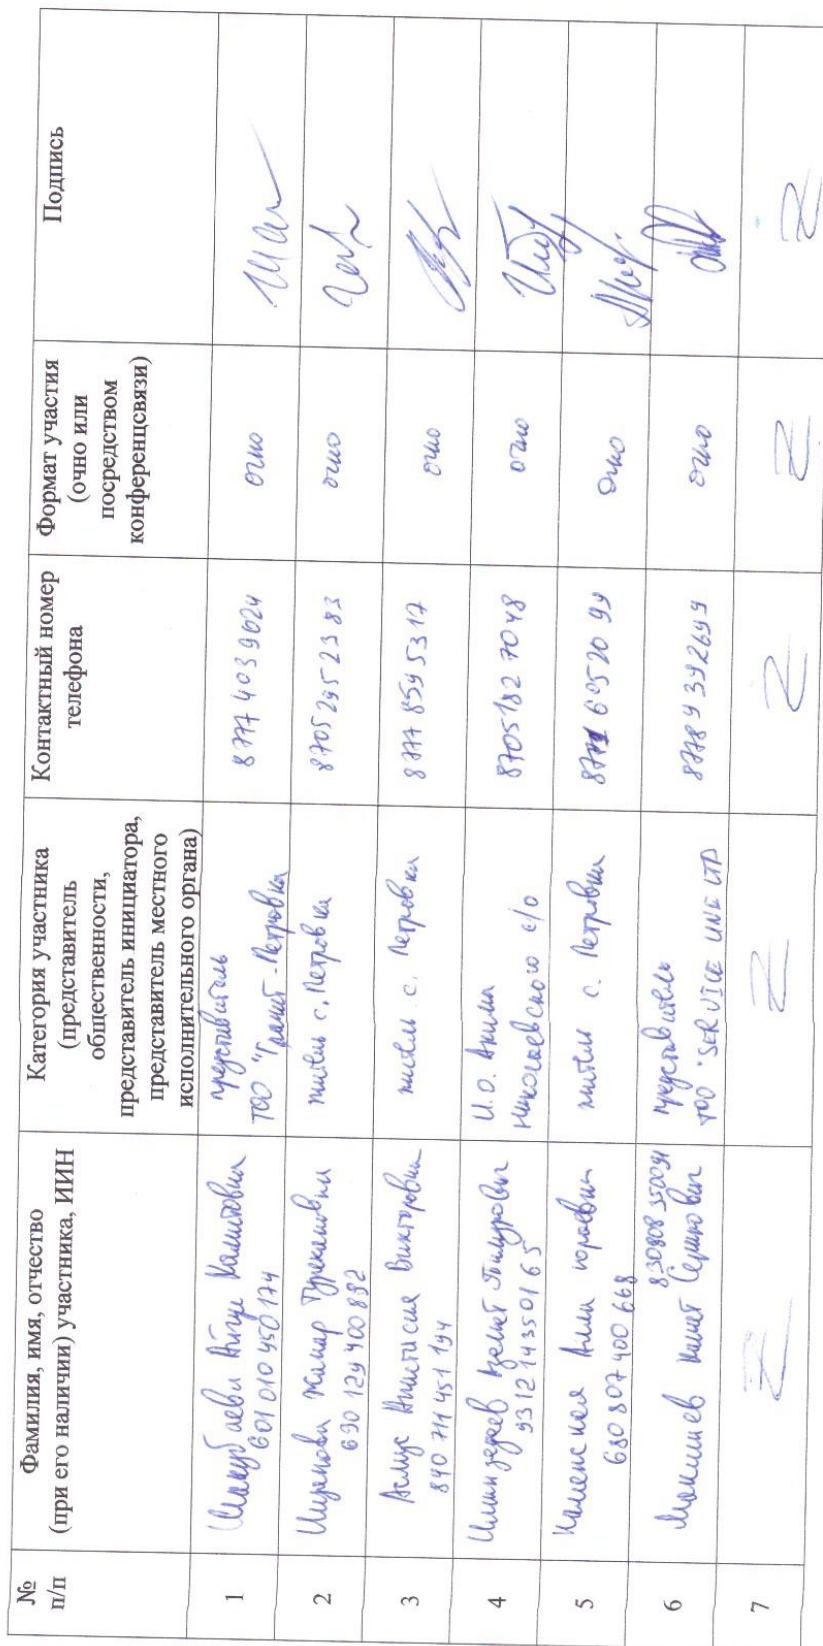 №
п/п
Фамилия, имя, отчество
(при его наличии) участника, ИИН
Категория участника
(представитель
общественности,
представитель инициатора,
представитель местного
исполнительного органа)
Контактный номер
телефона
Формат участия
(очно или
посредством
конференцсвязи)
Подпись
1
601010450174
представитель
ТОО "Гранит-Петровка
8 777 4039024
очно
2
690129400892
житель с. Петровка
8705 2952383
очно
3
Асмус Анастасия Викторовна
840 711 451 194
житель с. Петровка
8 777 8595317
очно
4
931214350165
И.О. Акима
Николаевского с/о
8705 182 7048
очно
5
Каменская Алла Юрьевна
680 807 400 668
житель с. Петровка
8771 6052099
очно
6
830808350091
Серикович
представитель
ТОО "SERVICE LINE LTD
8778 9392699
очно
7
Z
Z
Z
Z
Z